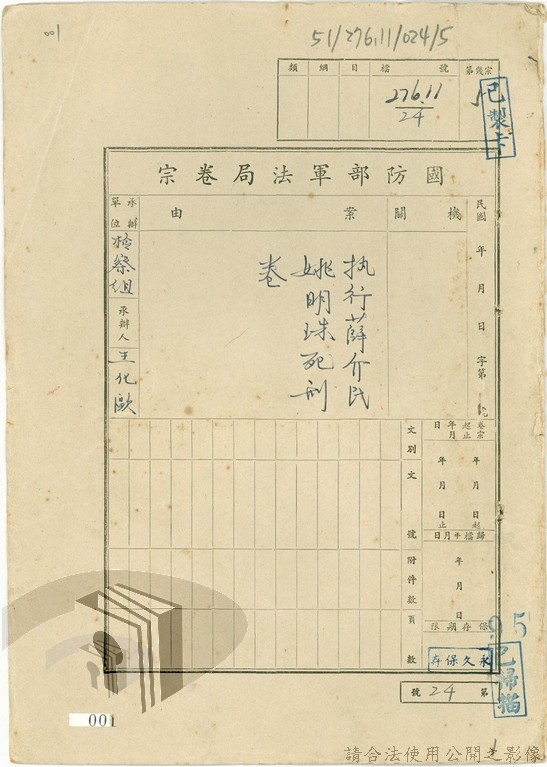 001
51/276.11/024/5
類 綱 目 檔 號 第幾宗
276.11
24
已製卡
國防部軍法局卷宗
機關
案由
承辦單位
檢察組
承辦人
王化歐
民國 年 月 日 字第 號
执行薛介民
姚明珠死刑
卷
卷宗起止年月日
年 月 日起
年 月 日止
歸檔年月日
年 月 日
保存期限
永久保存
文別
文號
附件數
頁數
95
已掃描
第 24 號
001
請合法使用公開之影像